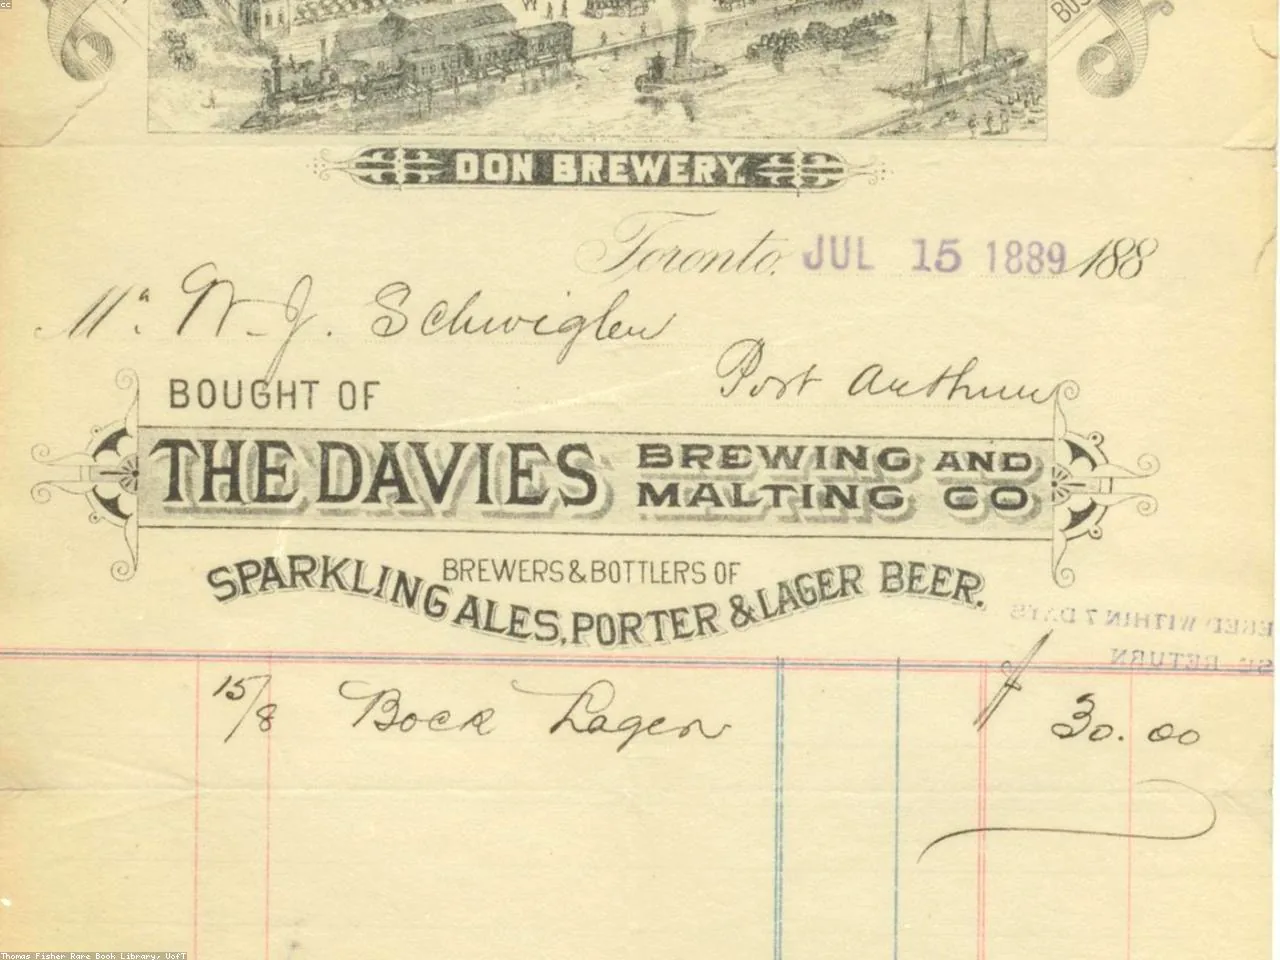 cc
BUS
DON BREWERY.
Toronto, JUL 15 1889 188
Mr. W. J. Schwigler
Port Arthur
BOUGHT OF
THE DAVIES BREWING AND MALTING CO
BREWERS & BOTTLERS OF
SPARKLING ALES, PORTER & LAGER BEER.
ERED WITHIN 7 DAYS
SE RETURN
15/8 Bock Lager 30.00
Thomas Fisher Rare Book Library, UofT